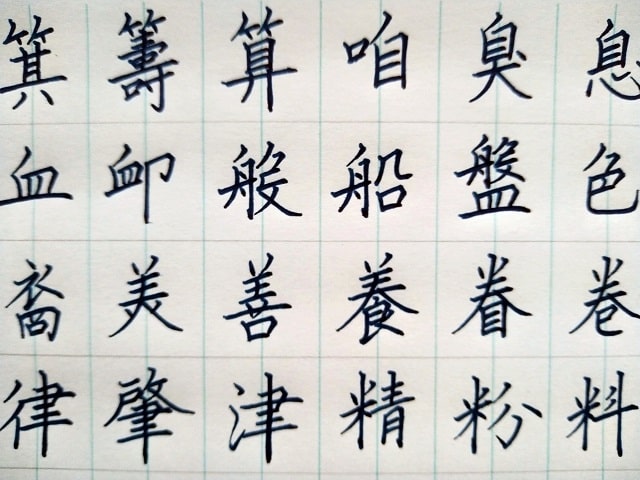 箕籌算咱臭息
血衄般船盤色
裔美善養眷卷
律肇津精粉料